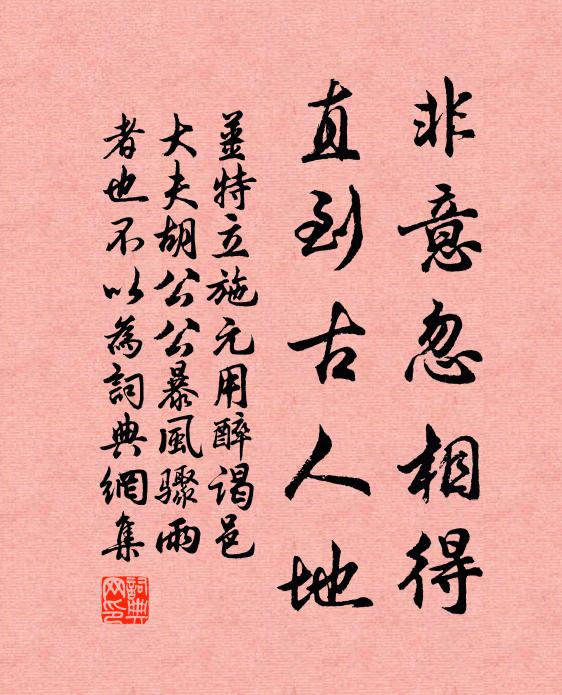 非意忽相得
直到古人地
姜特立施元用醉谒邑
大夫胡公公暴風驟雨
者也不以為詞典網集
詞典網印